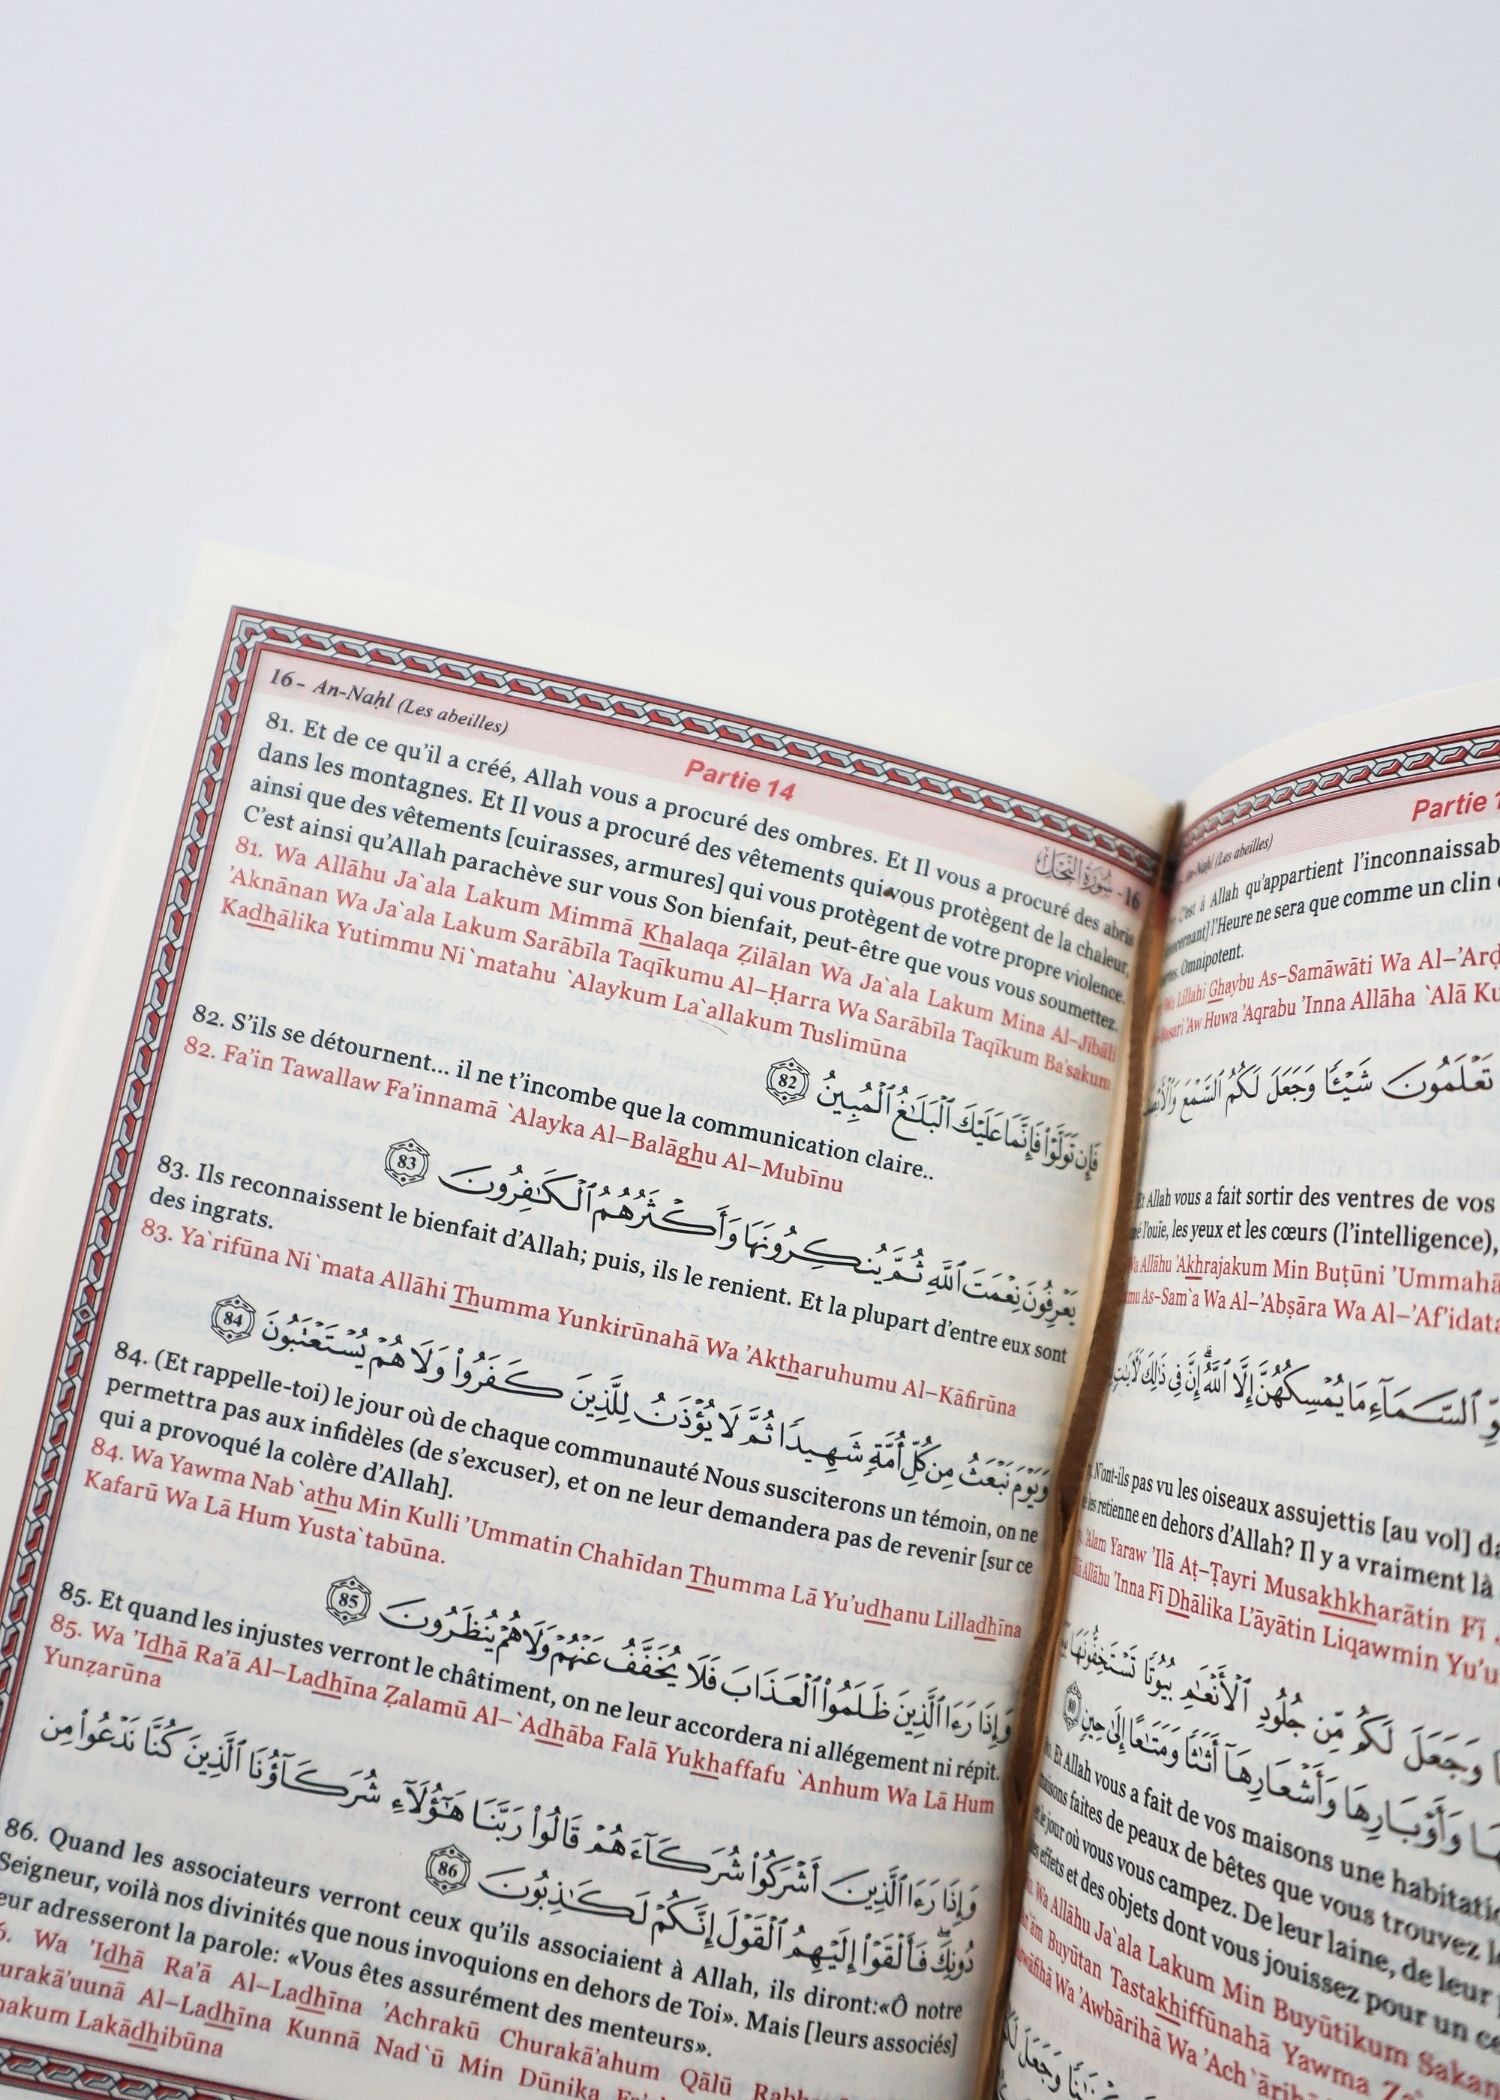 16- An-Naḥl (Les abeilles)
Partie 14
سُورَةُ النَّحْل -16
81. Et de ce qu'il a créé, Allah vous a procuré des ombres. Et Il vous a procuré des abris
dans les montagnes. Et Il vous a procuré des vêtements qui vous protègent de la chaleur,
ainsi que des vêtements [cuirasses, armures] qui vous protègent de votre propre violence.
C'est ainsi qu'Allah parachève sur vous Son bienfait, peut-être que vous vous soumettez.
81. Wa Allāhu Ja`ala Lakum Mimmā Khalaqa Žilālan Wa Ja`ala Lakum Mina Al–Jibāli
'Aknānan Wa Ja`ala Lakum Sarābīla Taqīkumu Al–Ḥarra Wa Sarābīla Taqīkum Ba'sakum
Kadhālika Yutimmu Ni`matahu `Alaykum La`allakum Tuslimūna
فَإِن تَوَلَّوْاْ فَإِنَّمَا عَلَيْكَ ٱلْبَلَٰغُ ٱلْمُبِينُ 82
82. S'ils se détournent... il ne t'incombe que la communication claire..
82. Fa'in Tawallaw Fa'innamā `Alayka Al–Balāghu Al–Mubīnu
يَعْرِفُونَ نِعْمَتَ ٱللَّهِ ثُمَّ يُنكِرُونَهَا وَأَكْثَرُهُمُ ٱلْكَٰفِرُونَ 83
83. Ils reconnaissent le bienfait d'Allah; puis, ils le renient. Et la plupart d'entre eux sont
des ingrats.
83. Ya`rifūna Ni`mata Allāhi Thumma Yunkirūnahā Wa 'Aktharuhumu Al–Kāfirūna
وَيَوْمَ نَبْعَثُ مِن كُلِّ أُمَّةٍ شَهِيدًا ثُمَّ لَا يُؤْذَنُ لِلَّذِينَ كَفَرُواْ وَلَا هُمْ يُسْتَعْتَبُونَ 84
84. (Et rappelle-toi) le jour où de chaque communauté Nous susciterons un témoin, on ne
permettra pas aux infidèles (de s'excuser), et on ne leur demandera pas de revenir [sur ce
qui a provoqué la colère d'Allah].
84. Wa Yawma Nab`athu Min Kulli 'Ummatin Chahīdan Thumma Lā Yu'udhanu Lilladhīna
Kafarū Wa Lā Hum Yusta`tabūna.
وَإِذَا رَءَا ٱلَّذِينَ ظَلَمُواْ ٱلْعَذَابَ فَلَا يُخَفَّفُ عَنْهُمْ وَلَا هُمْ يُنظَرُونَ 85
85. Et quand les injustes verront le châtiment, on ne leur accordera ni allégement ni répit.
85. Wa 'Idhā Ra'ā Al–Ladhīna Žalamū Al–`Adhāba Falā Yukhaffafu `Anhum Wa Lā Hum
Yunžarūna
وَإِذَا رَءَا ٱلَّذِينَ أَشْرَكُواْ شُرَكَآءَهُمْ قَالُواْ رَبَّنَا هَٰٓؤُلَآءِ شُرَكَآؤُنَا ٱلَّذِينَ كُنَّا نَدْعُواْ مِن
دُونِكَ ۖ فَأَلْقَوْاْ إِلَيْهِمُ ٱلْقَوْلَ إِنَّكُمْ لَكَٰذِبُونَ 86
86. Quand les associateurs verront ceux qu'ils associaient à Allah, ils diront:«Ô notre
Seigneur, voilà nos divinités que nous invoquions en dehors de Toi». Mais [leurs associés]
eur adresseront la parole: «Vous êtes assurément des menteurs».
Wa 'Idhā Ra'ā Al–Ladhīna 'Achrakū Churakā'ahum Qālū
urakā'uunā Al–Ladhīna Kunnā Nad`ū Min Dūnika
akum Lakādhibūna
An-Naḥl (Les abeilles)
Partie
C'est à Allah qu'appartient l'inconnaissab
l'Heure ne sera que comme un clin
Omnipotent.
Lillahi Ghaybu As–Samāwāti Wa Al–'Arḍ
'Aw Huwa 'Aqrabu 'Inna Allāha `Alā Ku
تَعْلَمُونَ شَيْـًٔا وَجَعَلَ لَكُمُ ٱلسَّمْعَ
Et Allah vous a fait sortir des ventres de vos
l'ouïe, les yeux et les cœurs (l'intelligence),
Allāhu 'Akhrajakum Min Buṭūni 'Ummahā
As–Sam`a Wa Al–'Abṣāra Wa Al–'Af'idata
ٱلسَّمَآءِ مَا يُمْسِكُهُنَّ إِلَّا ٱللَّهُ ۗ إِنَّ فِى ذَٰلِكَ لَءَايَٰتٍ
N'ont-ils pas vu les oiseaux assujettis [au vol]
les retienne en dehors d'Allah? Il y a vraiment là
'Alam Yaraw 'Ilā Aṭ–Ṭayri Musakhkharātin Fī
Allāhu 'Inna Fī Dhālika L'āyātin Liqawmin Yu'u
وَجَعَلَ لَكُم مِّن جُلُودِ ٱلْأَنْعَٰمِ بُيُوتًا تَسْتَخِفُّونَهَا
وَأَوْبَارِهَا وَأَشْعَارِهَآ أَثَٰثًا وَمَتَٰعًا إِلَىٰ حِينٍ 80
Et Allah vous a fait de vos maisons une habitatio
maisons faites de peaux de bêtes que vous trouvez
le jour où vous vous campez. De leur laine, de leur
des effets et des objets dont vous jouissez pour un
Wa Allāhu Ja`ala Lakum Min Buyūtikum Sakan
Buyūtan Tastakhiffūnahā Yawma
Wa 'Awbārihā Wa 'Ach`ārih
وَجَعَلَ